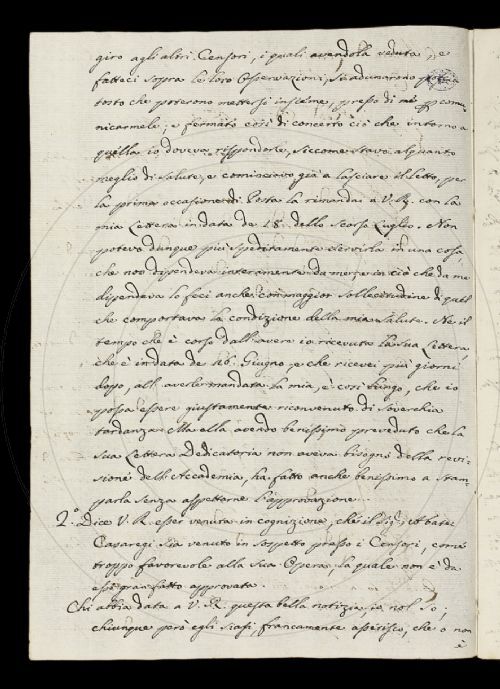 giro agli altri Censori, i quali avendola veduta, e
fatteci sopra le loro Osservazioni, si adunarono
tosto che poterono mettersi insieme, presso di me p comu
nicarmele; e fermato così di concerto ciò che intorno a
quella io doveva rispondere, siccome stavo alquanto
meglio di salute, e cominciavo già a lasciare il letto, per
la prima occasione di Posta la rimandai a V. R. con la
mia Lettera in data de 18. dello scorso Luglio. Non
potevo dunque più speditamente servirla in una cosa
che non dipendeva interamente da me; e in ciò che da me
dipendeva lo feci anche con maggior sollecitudine di quel
che comportava la condizione della mia salute. Ne il
tempo che è corso dall'avere io ricevuta la sua Lettera,
che è in data de 16. Giugno, e che ricevei più giorni
dopo, all'averle mandata la mia, è così lungo, che io
possa essere giustamente riconvenuto di soverchia
tardanza. Ma ella avendo benissimo preveduto che la
sua Lettera Dedicatoria non aveva bisogno della revi-
sione dell'Accademia, ha fatto anche benissimo a stam
parla senza aspettarne l'approvazione.
2.° Dice V. R. esser venuta in cognizione, che il Sig. Abate
Casaregi sia venuto in sospetto presso i Censori, come
troppo favorevole alla sua Opera, la quale non è da
essi gran fatto approvata.
Chi abbia data a V. R. questa bella notizia io nol so;
chiunque però egli siasi, francamente asserisco, che o non
è